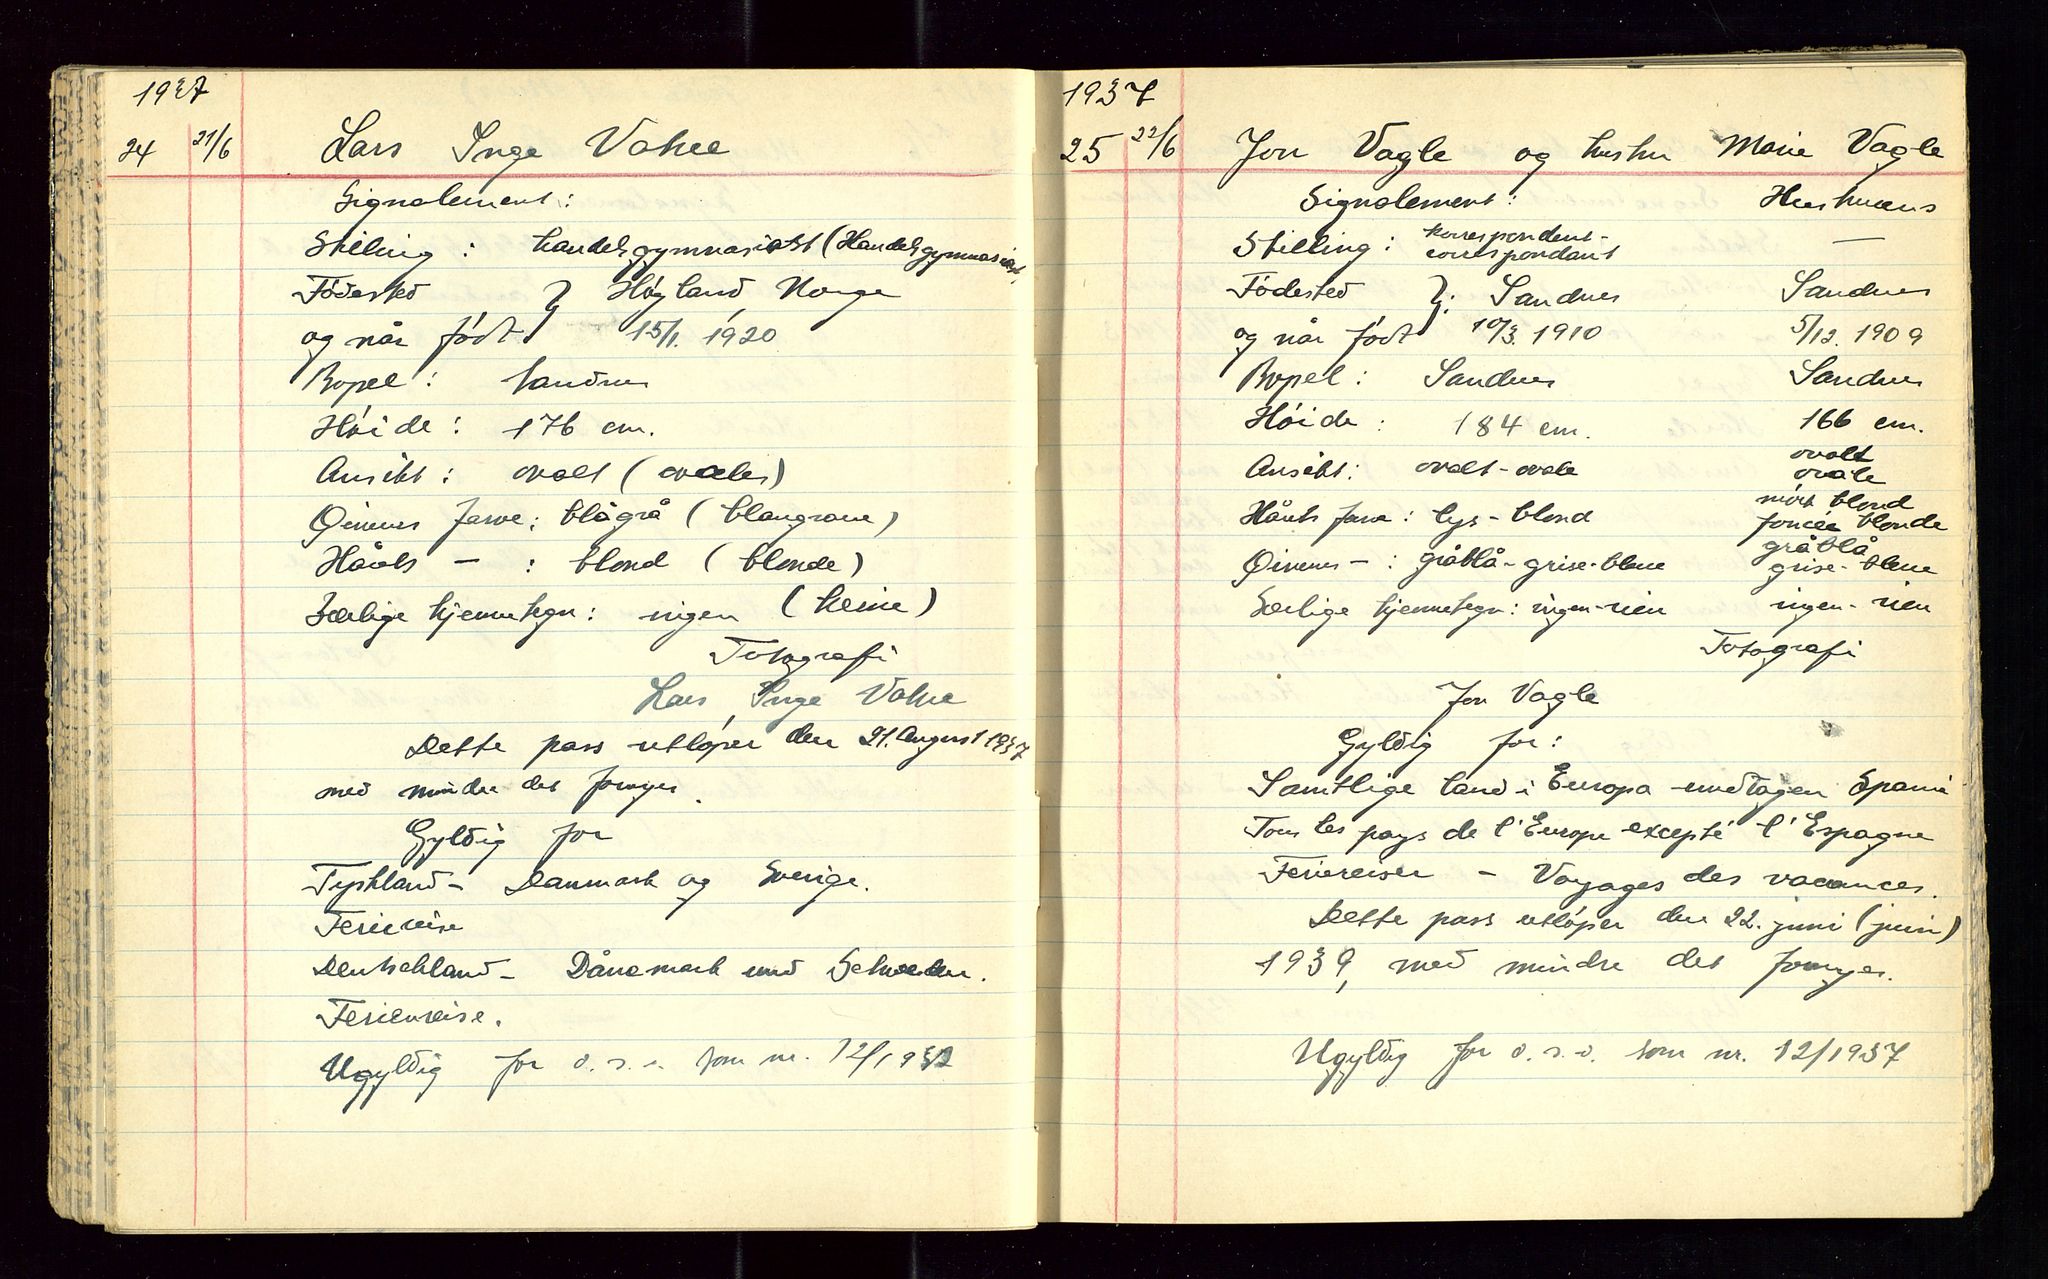 1937
24 21/6 Lars Inge
Signalement:
Stilling: handelsgymnasiast (Handelsgymnasiast
Fødested } Høyland, Norge
og når født } 15/1. 1920
Bopel: Sandnes
Høide: 176 cm.
Ansikt: ovalt (ovales)
Øinenes farve: blågrå (blaugraue)
Hårets — : blond (blonde)
Særlige kjennetegn: ingen (keine)
Fotografi
Lars Inge
Dette pass utløper den 21. August 1937
med mindre det fornyes.
Gyldig for
Tyskland - Danmark og Sverige.
Feriereise
Deutschland - Dänemark und Schweden.
Ferienreise.
Ugyldig for o.s.v. som nr. 12/1937
1937
25 22/6 Jon Vagle og hustru Marie Vagle
Signalement: Hustruens
Stilling: korrespondent- —
correspondant
Fødested }: Sandnes Sandnes
og når født 10/3. 1910 5/12. 1909
Bopel: Sandnes Sandnes
Høide: 184 cm. 166 cm.
Ansikt: ovalt - ovale ovalt ovale
Hårets farve: lys - blond mørk blond foncée blonde
Øinenes — : gråblå - grise-bleue gråblå grise-bleue
Særlige kjennetegn: ingen - rien ingen - rien
Fotografi
Jon Vagle
Gyldig for:
Samtlige land i Europa undtagen Spania
Tous les pays de l'Europe excepté l'Espagne
Feriereiser - Voyages des vacances.
Dette pass utløper den 22. juni (juin)
1939, med mindre det fornyes.
Ugyldig for o.s.v. som nr. 12/1937